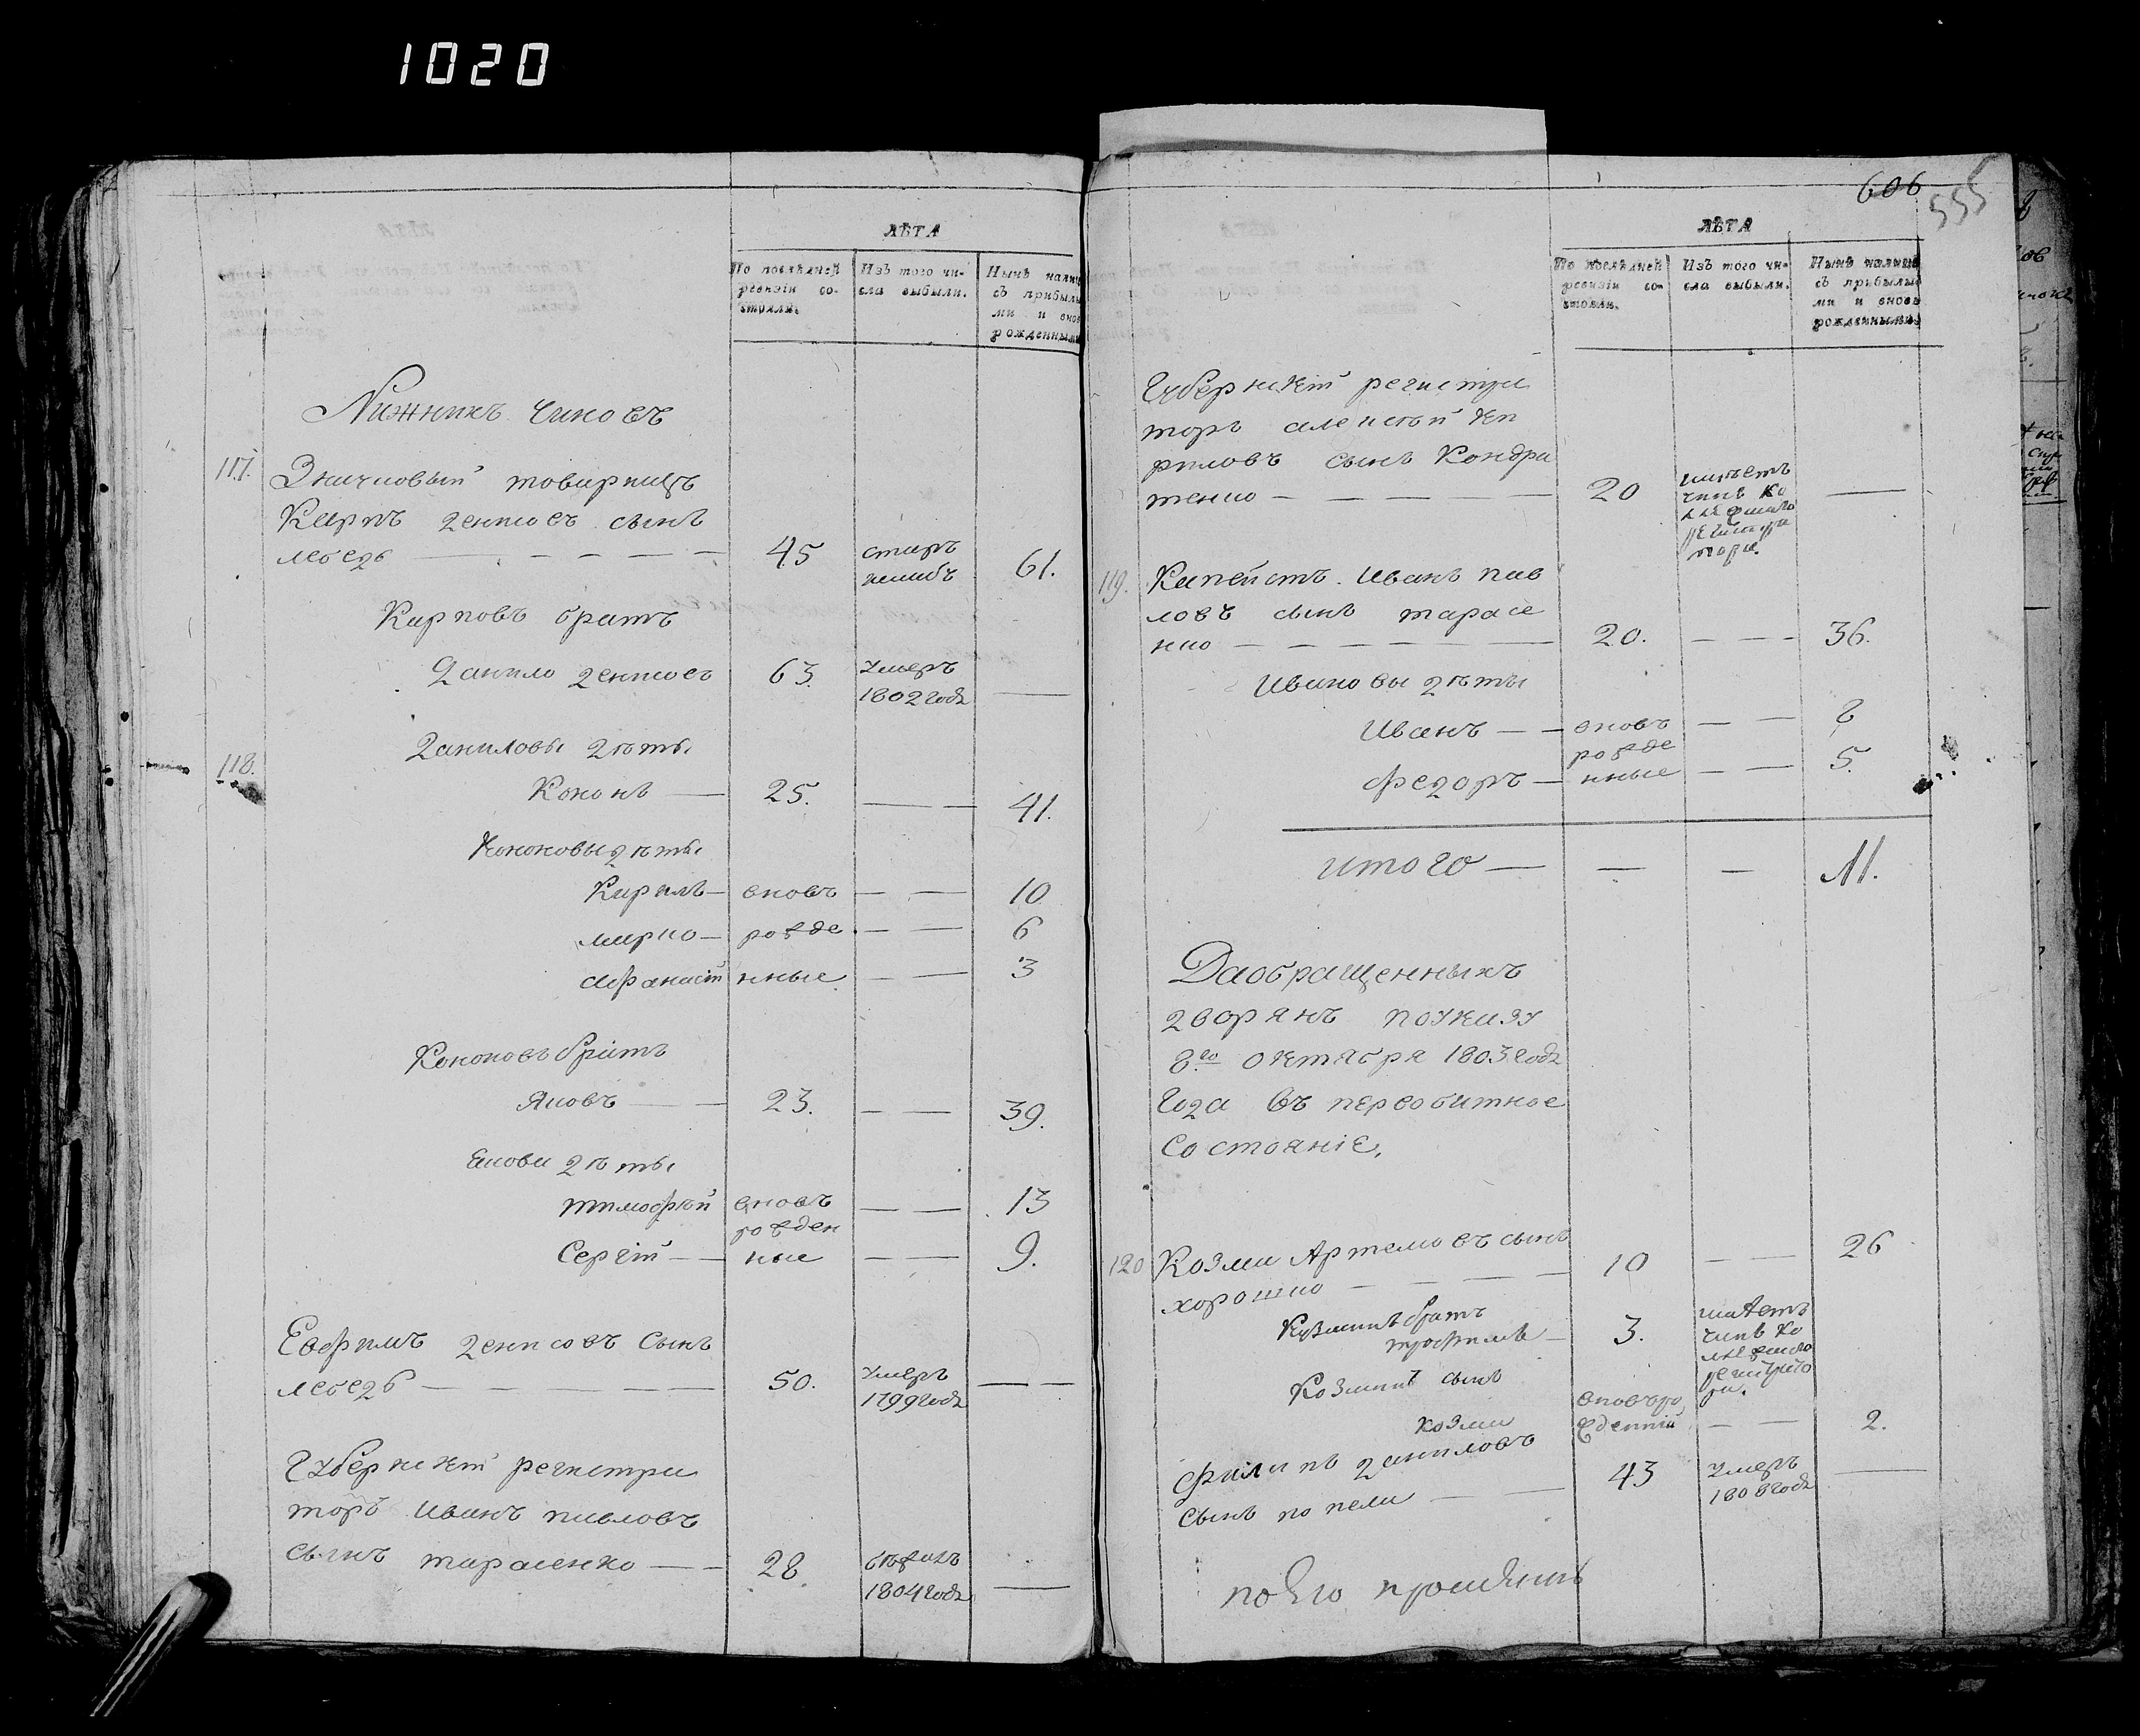 1020
ЛѢТА
По послѣдней ревизіи со- стояли.
Изъ того чи- сла выбыли.
Нынѣ налиц съ прибылы ми и внов рожденными
Нижнихъ чиновъ
117. Значковый товарищъ
Карпъ денисовъ сынъ
лебедь 45 61.
Карповъ братъ
Данило денисовъ 63. умеръ
1802 года
Даниловы дѣти
118. Кононъ 25. 41.
Кононовы дѣти
Кирилъ вновь 10
марко рожде 6
Афанасій нные 3
Кононовъ братъ
Яковъ 23. 39.
Яковы дѣти
тимофѣй вновь 13
рожден
Сергій ные 9.
Евфимъ денисовъ сынъ
лебедь 50. умеръ
1799 года
Губернскій регистра
торъ иванъ павловъ
сынъ тарасенко 28
1804 года
606
555
ЛѢТА
По послѣдней ревизіи со- стояли.
Изъ того чи- сла выбыли.
Нынѣ налицо съ прибылы ми и вновь рожденными
Губернскій регистра
торъ алексѣй ки
риловъ сынъ кондра
тенко 20 имѣетъ
чинъ ко
ллежского
регистра
тора.
119. Капеистъ иванъ пав
ловъ сынъ тарасе
нко 20. 36.
Ивановы дѣти
Иванъ вновь 8
рожде
Федоръ нные 5.
итого 11.
Даобращенныхъ
дворянъ поуказу
8го октября 1803 года
года въ первобитное
состояніе.
120 Козма Артемовъ сынъ 10 26
хорошко
Козминъ братъ
трофимъ 3. имѣетъ
чинъ ко
ллежского
регистрато
ра.
Козминъ сынъ
козма вновь ро
жденній 2.
Филипъ даниловъ
сынъ попели 43 умеръ
1808 года